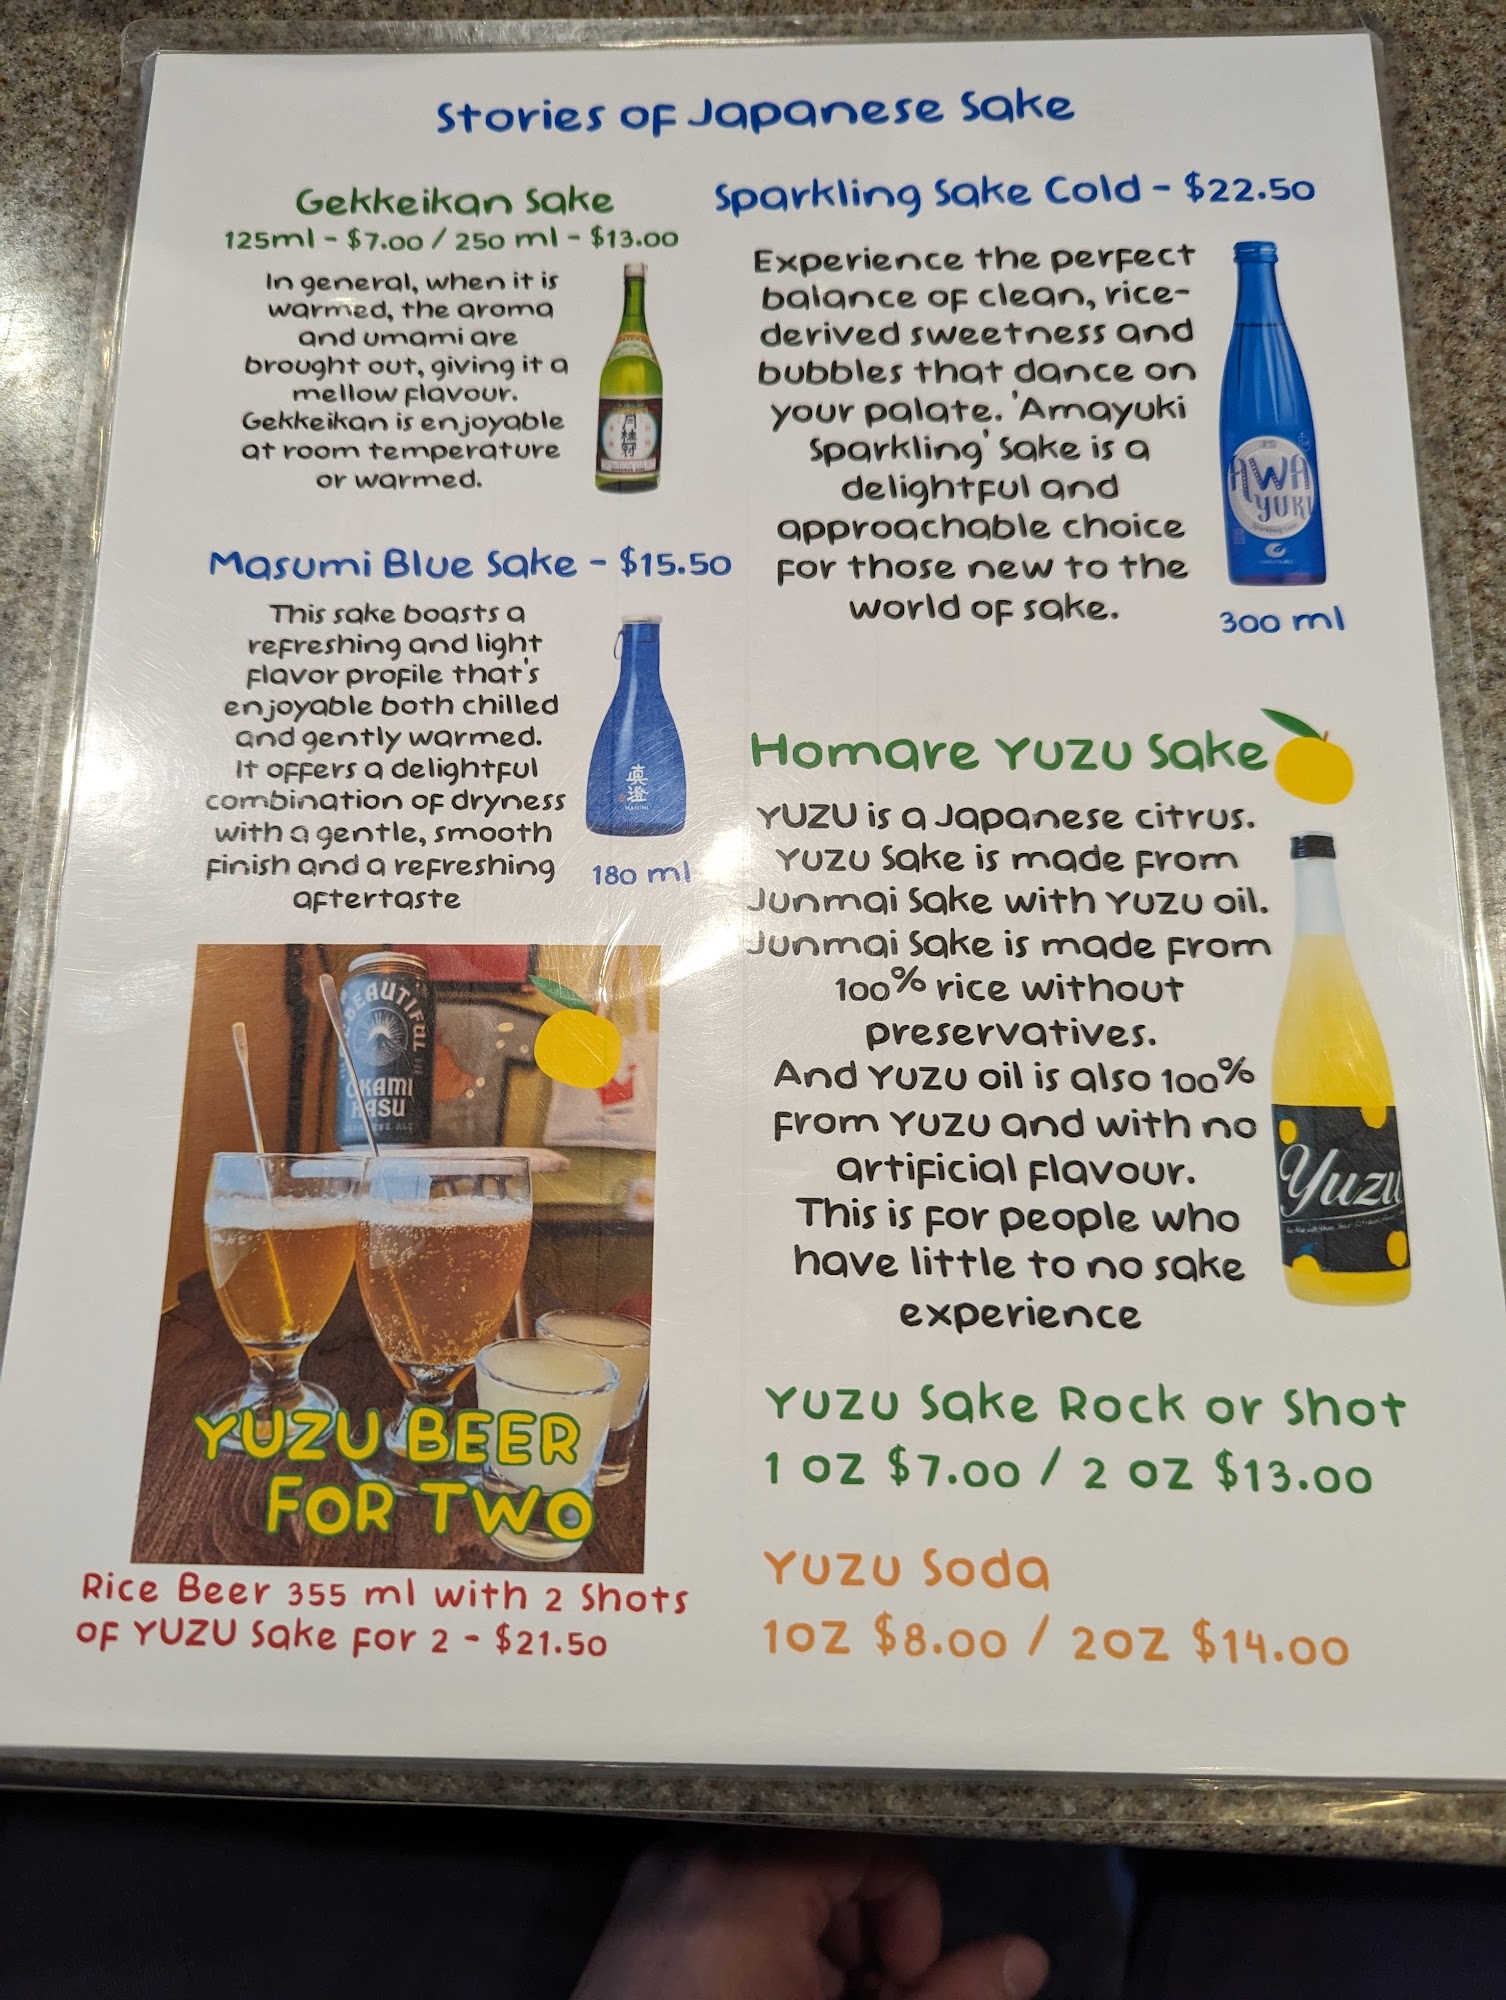 Stories of Japanese Sake
Gekkeikan Sake
125ml - $7.00 / 250 ml - $13.00
In general, when it is
warmed, the aroma
and umami are
brought out, giving it a
mellow flavour.
Gekkeikan is enjoyable
at room temperature
or warmed.
月桂冠
Masumi Blue Sake - $15.50
This sake boasts a
refreshing and light
flavor profile that's
enjoyable both chilled
and gently warmed.
It offers a delightful
combination of dryness
with a gentle, smooth
finish and a refreshing
aftertaste
真澄
MASUMI
180 ml
BEAUTIFUL
OKAMI
KASU
JAPANESE ALE
YUZU BEER
FOR TWO
Rice Beer 355 ml with 2 Shots
of YUZU Sake for 2 - $21.50
Sparkling Sake Cold - $22.50
Experience the perfect
balance of clean, rice-
derived sweetness and
bubbles that dance on
your palate. 'Amayuki
Sparkling' Sake is a
delightful and
approachable choice
for those new to the
world of sake.
AWA
YUKI
Sparkling Sake
300 ml
Homare YUZU Sake
YUZU is a Japanese citrus.
YUZU Sake is made from
Junmai Sake with YUZU oil.
Junmai Sake is made from
100% rice without
preservatives.
And YUZU oil is also 100%
from YUZU and with no
artificial flavour.
This is for people who
have little to no sake
experience
Yuzu
YUZU Sake Rock or Shot
1 OZ $7.00 / 2 OZ $13.00
YUZU Soda
1OZ $8.00 / 2OZ $14.00